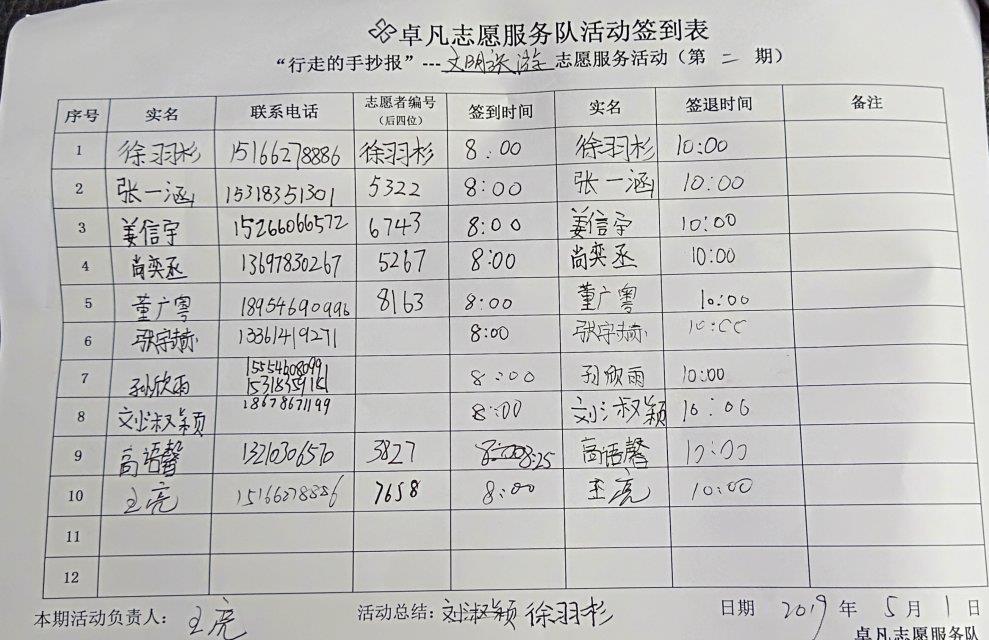 卓凡志愿服务队活动签到表
“行走的手抄报”---文明旅游志愿服务活动（第 二 期）
序号 实名 联系电话 志愿者编号（后四位） 签到时间 实名 签退时间 备注
1 徐羽杉 15166278886 徐羽杉 8:00 徐羽杉 10:00
2 张一涵 15318351301 5322 8:00 张一涵 10:00
3 姜信宇 15266066572 6743 8:00 姜信宇 10:00
4 尚奕丞 13697830267 5267 8:00 尚奕丞 10:00
5 董广粤 18954690996 8163 8:00 董广粤 10:00
6 张宇赫 13361419271 8:00 张宇赫 10:00
7 孙欣雨 15554608099 15318359181 8:00 孙欣雨 10:00
8 刘淑颖 18678671199 8:00 刘淑颖 10:00
9 高语馨 13210306570 3827 8:25 高语馨 10:00
10 王亮 15166278886 7658 8:00 王亮 10:00
11
12
本期活动负责人：王亮 活动总结：刘淑颖 徐羽杉 日期 2019 年 5 月 1 日
卓凡志愿服务队